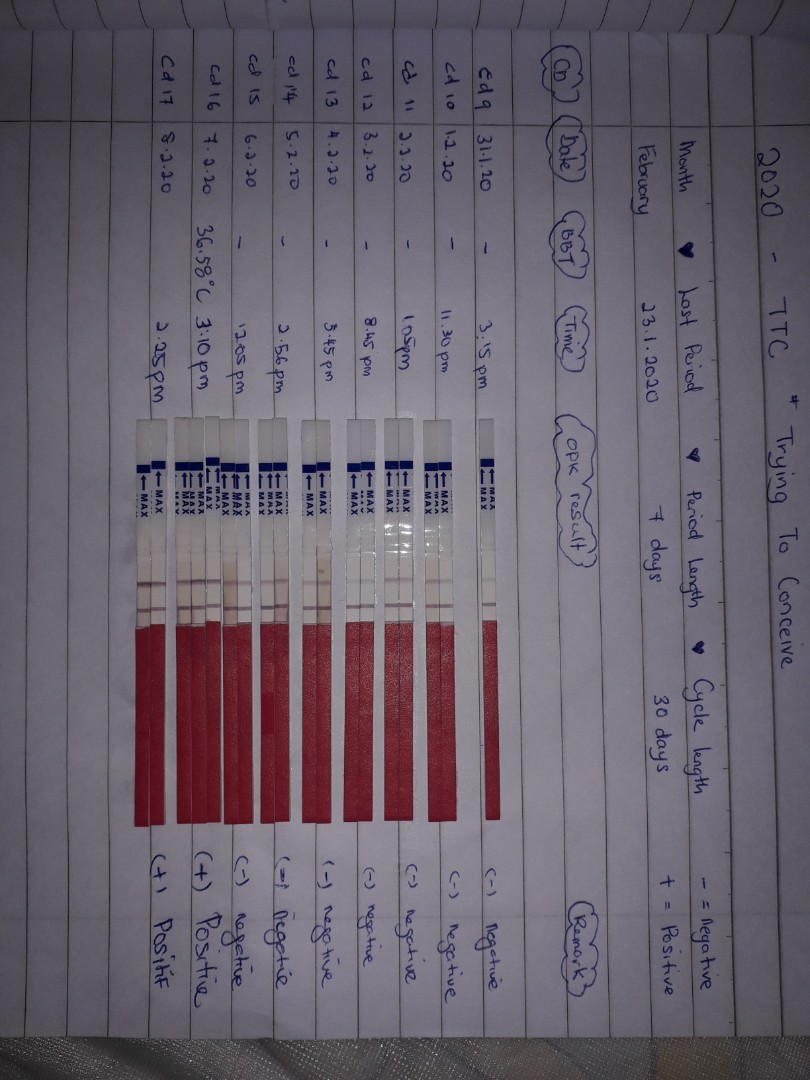 2020 - TTC * Trying To Conceive
Month ♥ Last Period ♥ Period Length ♥ Cycle length - = negative
Febuary 23.1.2020 7 days 30 days + = Positive
CD Date BBT Time OPK result Remark
cd 9 31.1.20 - 3:15 pm MAX (-) Negative
cd 10 1.2.20 - 11.30 pm MAX MAX (-) negative
cd 11 2.2.20 - 1.05pm MAX MAX (-) negative
cd 12 3.2.20 - 8.45 pm MAX MAX (-) negative
cd 13 4.2.20 - 3.45 pm MAX MAX (-) negative
cd 14 5.2.20 - 2.56 pm MAX MAX (-) Negative
cd 15 6.2.20 - 12.05 pm MAX MAX (-) negative
cd 16 7.2.20 36.58°C 3:10 pm MAX MAX MAX MAX (+) Positive
cd 17 8.2.20 2.25pm MAX MAX (+) Positif